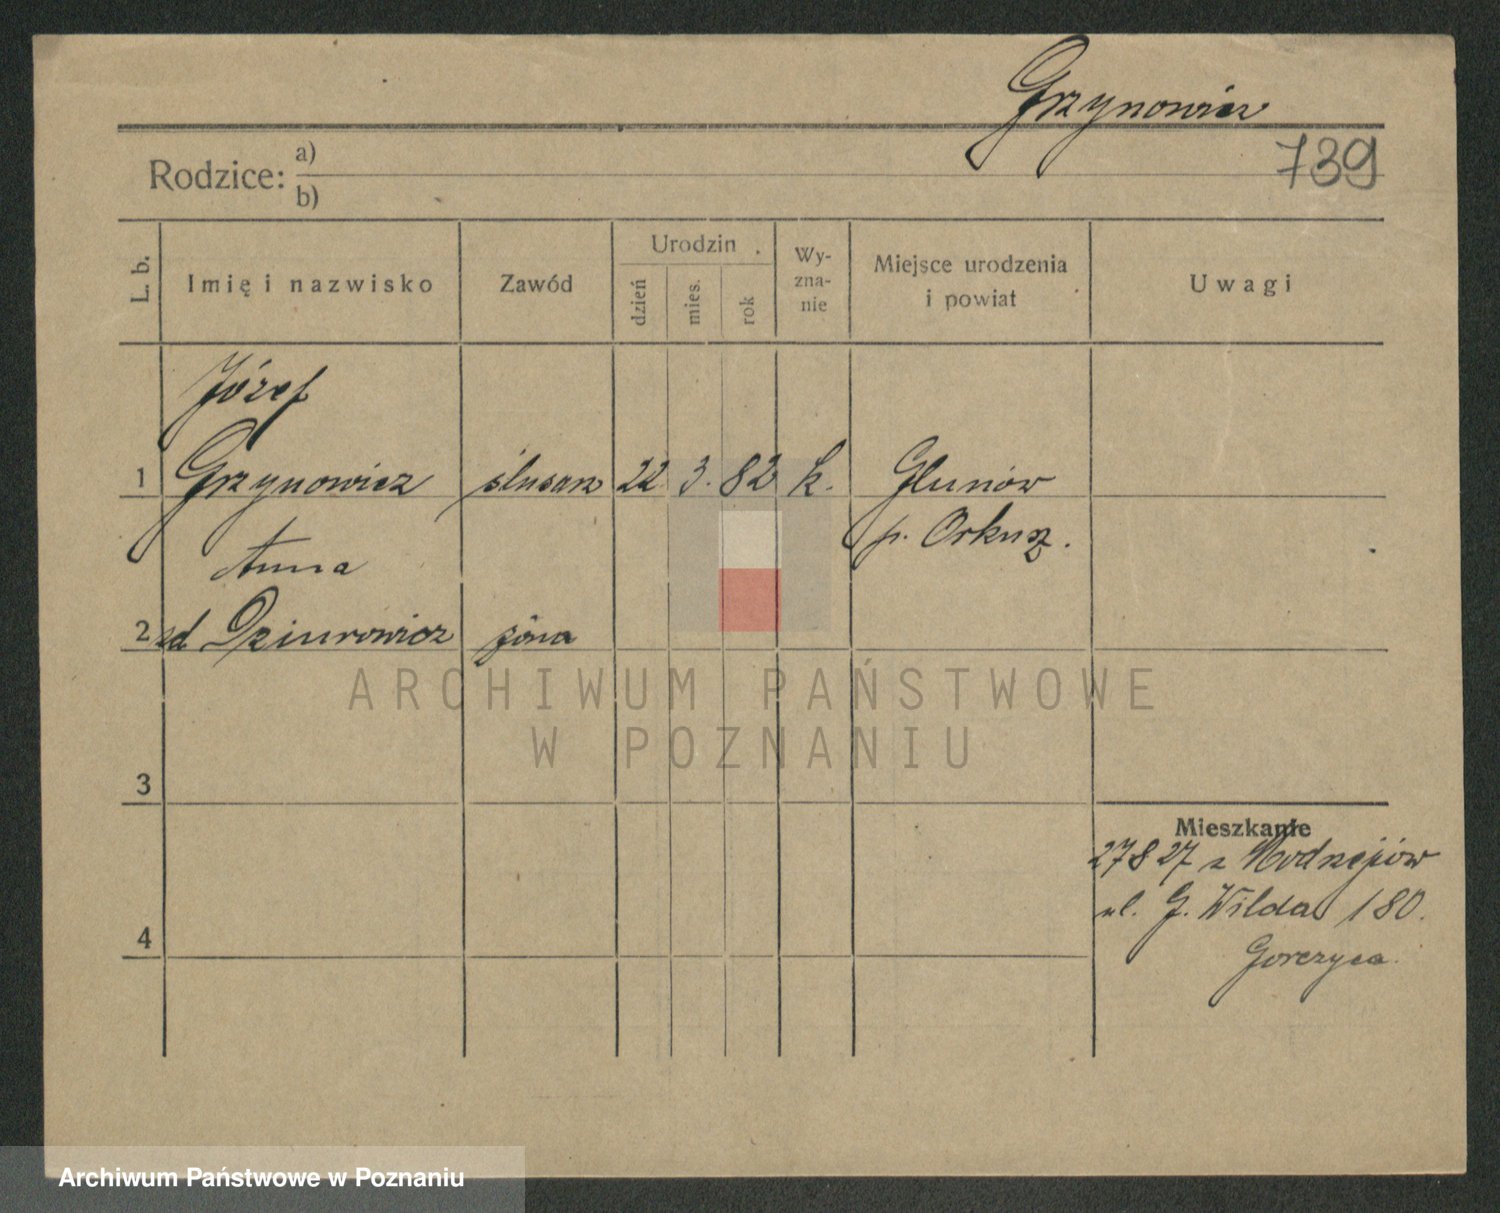 Grzynowicz
739
Rodzice: a)
b)
L. b.
Imię i nazwisko
Zawód
Urodzin
dzień
mies.
rok
Wy-
zna-
nie
Miejsce urodzenia
i powiat
Uwagi
Józef
1 Grzynowicz ślusarz 22 3. 82 k. Glunów
p. Orkusz.
Anna
2 zd Dziurowicz żona
ARCHIWUM PAŃSTWOWE
W POZNANIU
3
Mieszkanie
27 8 27 z Modrzejów
ul. G. Wilda 180.
Gorczyca.
4
Archiwum Państwowe w Poznaniu